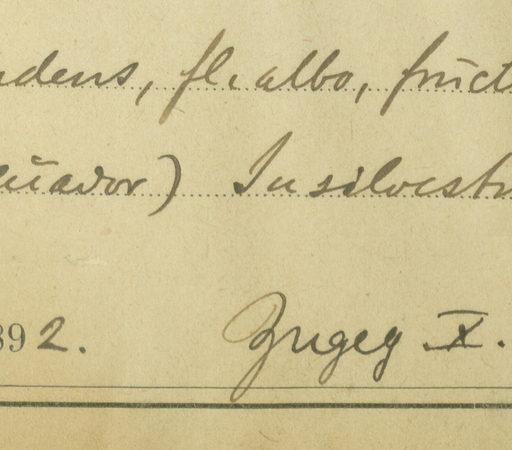 ndens, fl. albo, fruct
cuador) In silvestr
892. X.